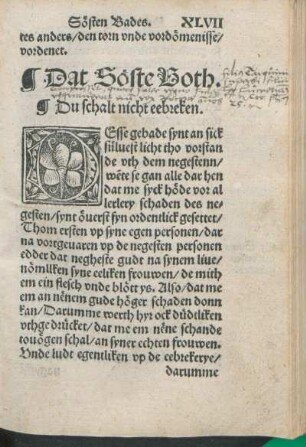 Sösten Bades. XLVII
tes anders/den torn vnde vordömenisse/
vordenet.
¶ Dat Söste Both.
¶ Du schalt nicht eebreken.
Esse gebade synt an sick
süluest licht tho vorstan
de vth dem negestenn/
wete se gan alle dar hen
dat me syck höde vor al
lerley schaden des ne-
gesten/synt öuerst syn ordentlick gesettet/
Thom ersten vp syne egen personen/dar
na vortgeuaren vp de negesten personen
edder dat negheste gudt na synem liue/
nömliken syne eeliken frouwen/de mith
em ein flesch vnde blött ys. Also/dat me
em an nenem gude höger schaden donn
kan/Darumme werth hyr ock düdtliken
vthgedrücket/dat me em nene schande
touögen schal/an syner echten frouwen.
Vnde ludt egentliken vp de eebrekerye/
darumme